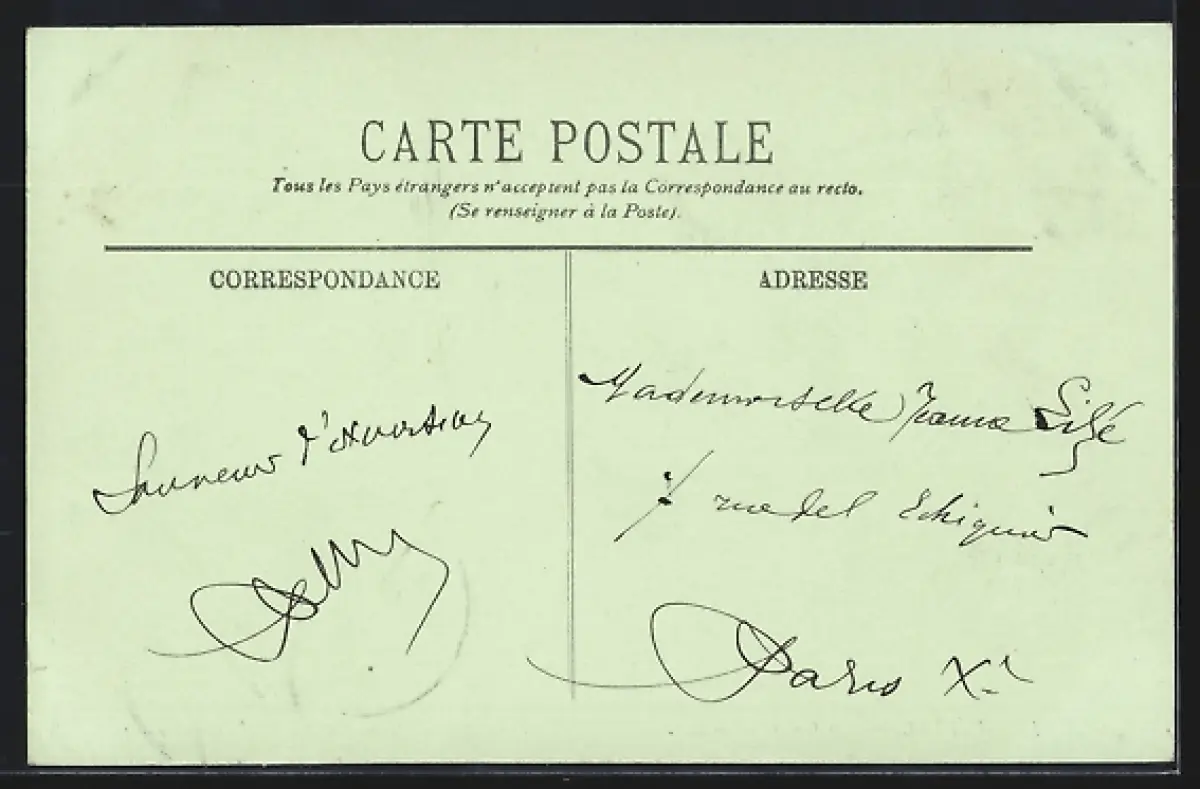 CARTE POSTALE
Tous les Pays étrangers n'acceptent pas la Correspondance au recto.
(Se renseigner à la Poste).
CORRESPONDANCE
ADRESSE
Mademoiselle
rue de l Echiquier
Paris Xe